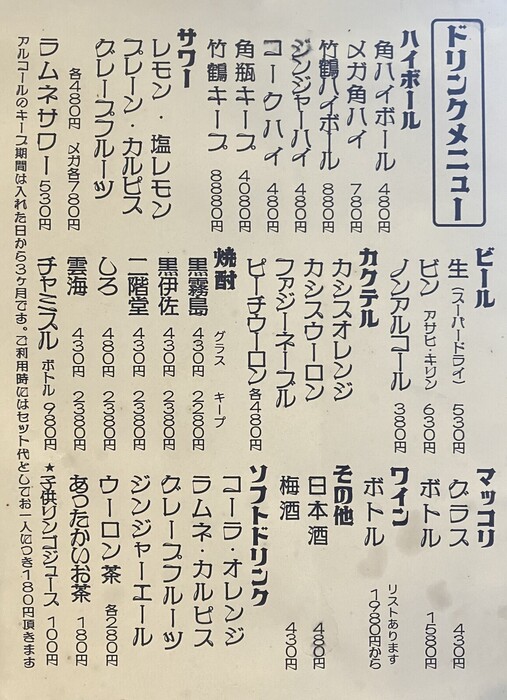 ドリンクメニュー
ハイボール
角ハイボール 480円
メガ角ハイ 780円
竹鶴ハイボール 880円
ジンジャーハイ 480円
コークハイ 480円
角瓶キープ 4080円
竹鶴キープ 8880円
サワー
レモン・塩レモン
プレーン・カルピス
グレープフルーツ
各480円 メガ各780円
ラムネサワー 530円
ビール
生(スーパードライ) 530円
ビン アサヒ・キリン 630円
ノンアルコール 380円
カクテル
カシスオレンジ
カシスウーロン
ファジーネーブル
ピーチウーロン 各480円
焼酎
グラス キープ
黒霧島 430円 2280円
黒伊佐 430円 2380円
二階堂 430円 2380円
しろ 480円 2380円
雲海 430円 2380円
チャミスル ボトル 980円
マッコリ
グラス 430円
ボトル 1580円
ワイン
ボトル リストあります 1980円から
その他
日本酒 480円
梅酒 430円
ソフトドリンク
コーラ・オレンジ
ラムネ・カルピス
グレープフルーツ
ジンジャーエール
ウーロン茶 各280円
あったかいお茶 180円
★子供リンゴジュース 100円
アルコールのキープ期間は入れた日から3ヶ月です。ご利用時にはセット代としてお一人につき180円頂きます